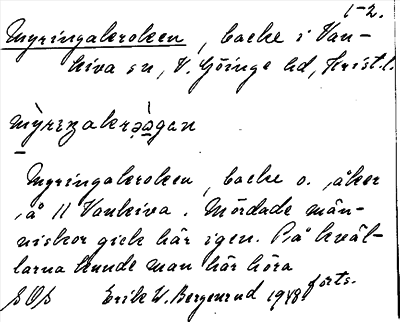 1-2.
Myringakroken, backe i Van-
kiva sn, V. Göinge hd, Krist. l.
mỳrıŋakrə̀əgan
Myringakroken, backe o. åker
å 11 Vankiva. Mördade män-
niskor gick här igen. På kväl-
larna kunde man här höra
forts.
SOS Erik W. Bergenrud 1948